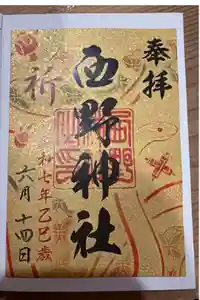 奉拝
西野神社
祈
令和七年乙巳歳
六月十四日